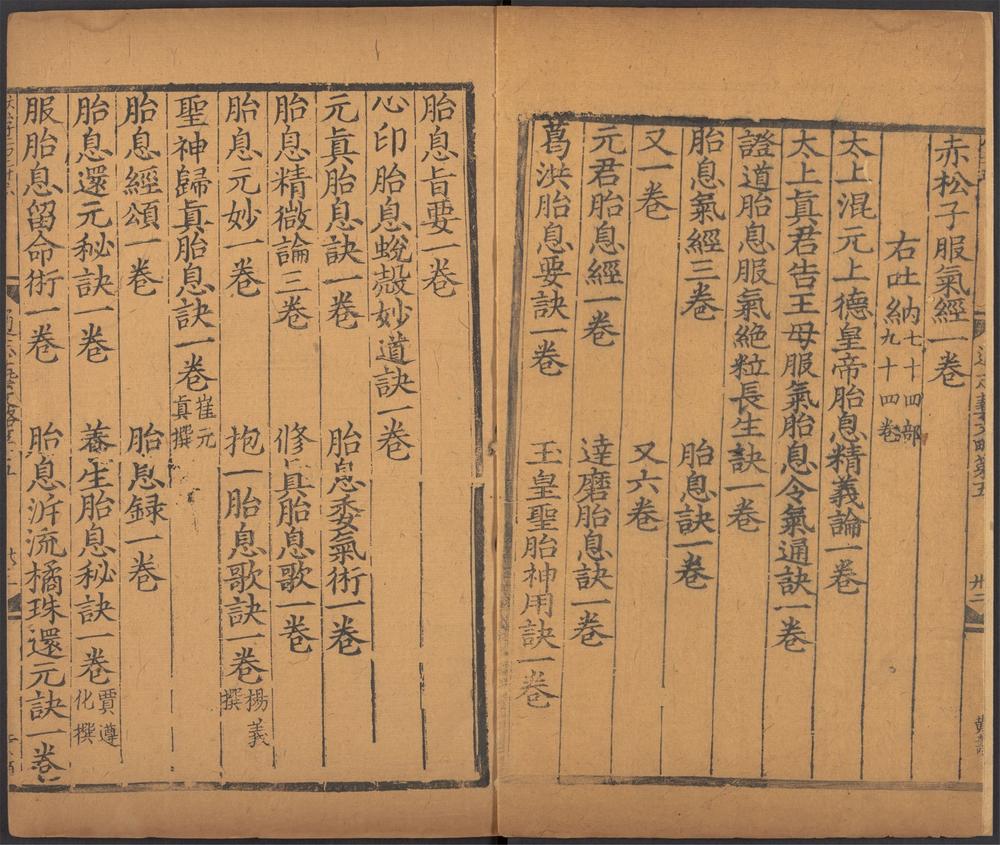 赤松子服氣經一卷
右吐納七十四部九十四卷
太上混元上德皇帝胎息精義論一卷
太上眞君告王母服氣胎息令氣通訣一卷
證道胎息服氣絶粒長生訣一卷
胎息氣經三卷 胎息訣一卷
又一卷 又六卷
元君胎息經一卷 達磨胎息訣一卷
葛洪胎息要訣一卷 玉皇聖胎神用訣一卷
胎息旨要一卷
心印胎息蛻殼妙道訣一卷
元眞胎息訣一卷 胎息委氣術一卷
胎息精微論三卷 修眞胎息歌一卷
胎息元妙一卷 抱一胎息歌訣一卷楊義撰
聖神歸眞胎息訣一卷崔元眞撰
胎息經頌一卷 胎息録一卷
胎息還元秘訣一卷 養生胎息秘訣一卷賈遵化撰
服胎息留命術一卷 胎息泝流橘珠還元訣一卷